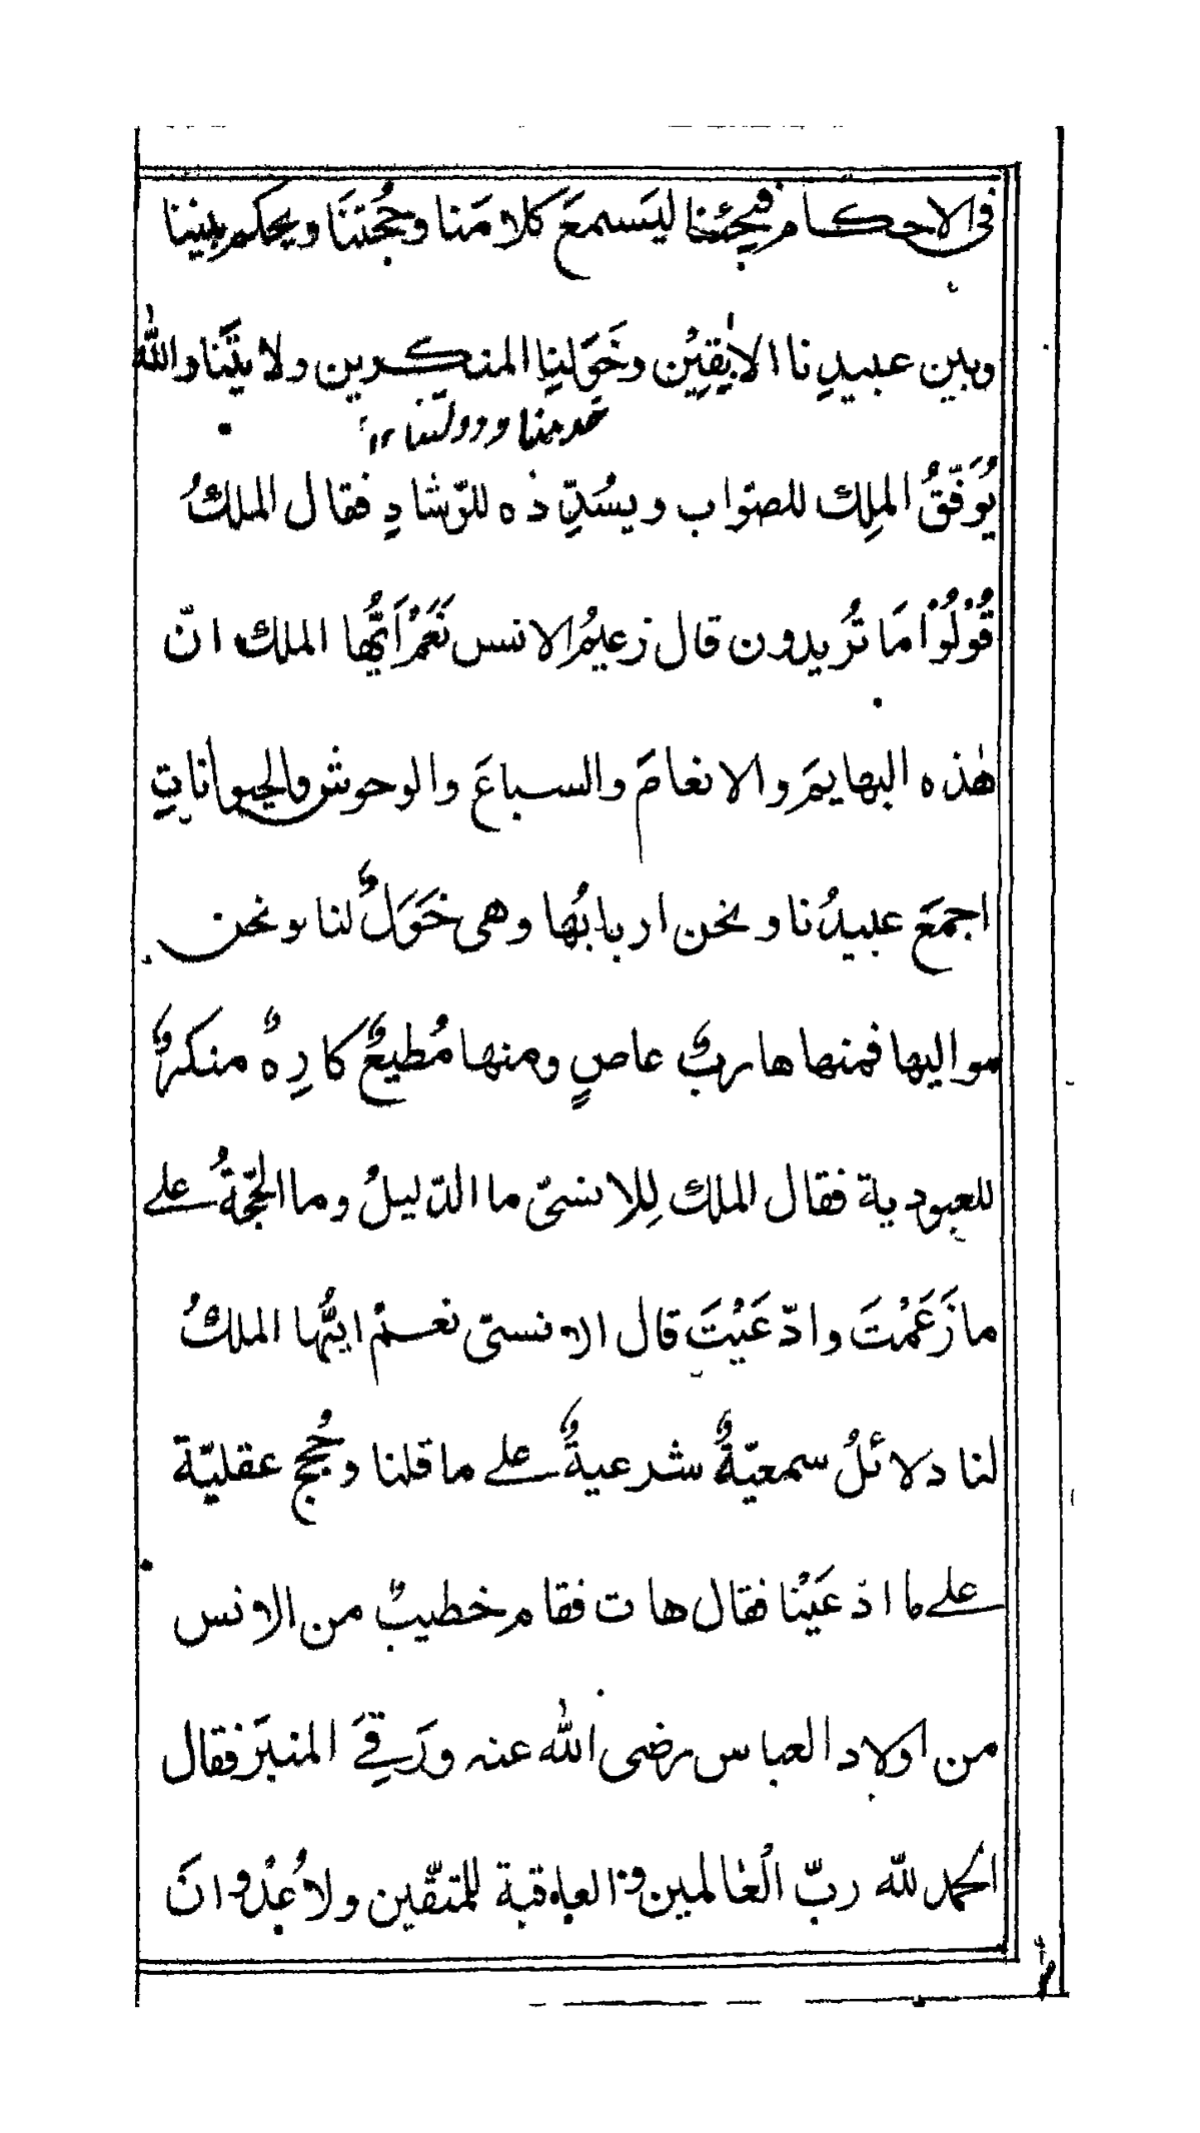 فى الاحكام فجئنا ليَسمعَ كلامَنا وحُجتنَا ويحكم بيننا
وبين عبيدِنا الاٰبِقِيْن وخَوَلِنا المنكرين ولايتَنا والله
خدمتنا ودولتنا ١٢
يُوَفّقُ الملِك للصّواب ويسُدِّده للرّشادِ فقال الملكُ
قُوْلُوْا مَا تُريدون قال زعيمُ الانس نَعَمْ اَيُّها الملك انّ
هٰذه البهايمَ والانعامَ والسباعَ والوحوش والحيوانات
اجمعَ عبيدُنا ونحن اربابُها وهى خَوَلٌ لنا ونحن
مواليها فمنها هاربٌ عاصٍ ومنها مُطيعٌ كارِهٌ منكرٌ
للعبودية فقال الملك لِلانسىّ ما الدّليلُ وما الحجّةُ علے
ما زَعَمْتَ وادّعَيْتَ قال الانسىّ نعمْ ايّها الملكُ
لنا دلائلُ سمعيّةٌ شرعيةٌ علے ما قلنا وحُججٌ عقليّة
علے ما ادّعَيْنا فقال هات فقام خطيبٌ من الانس
من اولاد العباس رضى الله عنه ورَقِےَ المنبَر فقال
الحمد للّه ربّ الْعٰالمين والعاقبة للمتقّين ولا عُدْوانَ